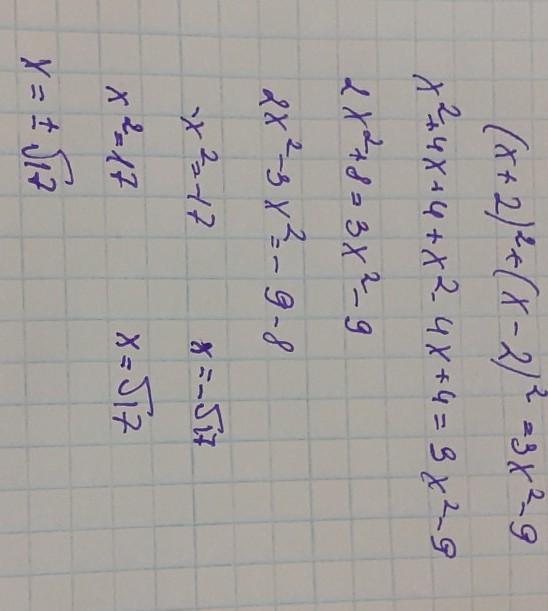 (x+2)²+(x-2)²=3x²-9
x²+4x+4+x²-4x+4=3x²-9
2x²+8=3x²-9
2x²-3x²=-9-8
-x²=-17 x=-√17
x²=17 x=√17
x=±√17